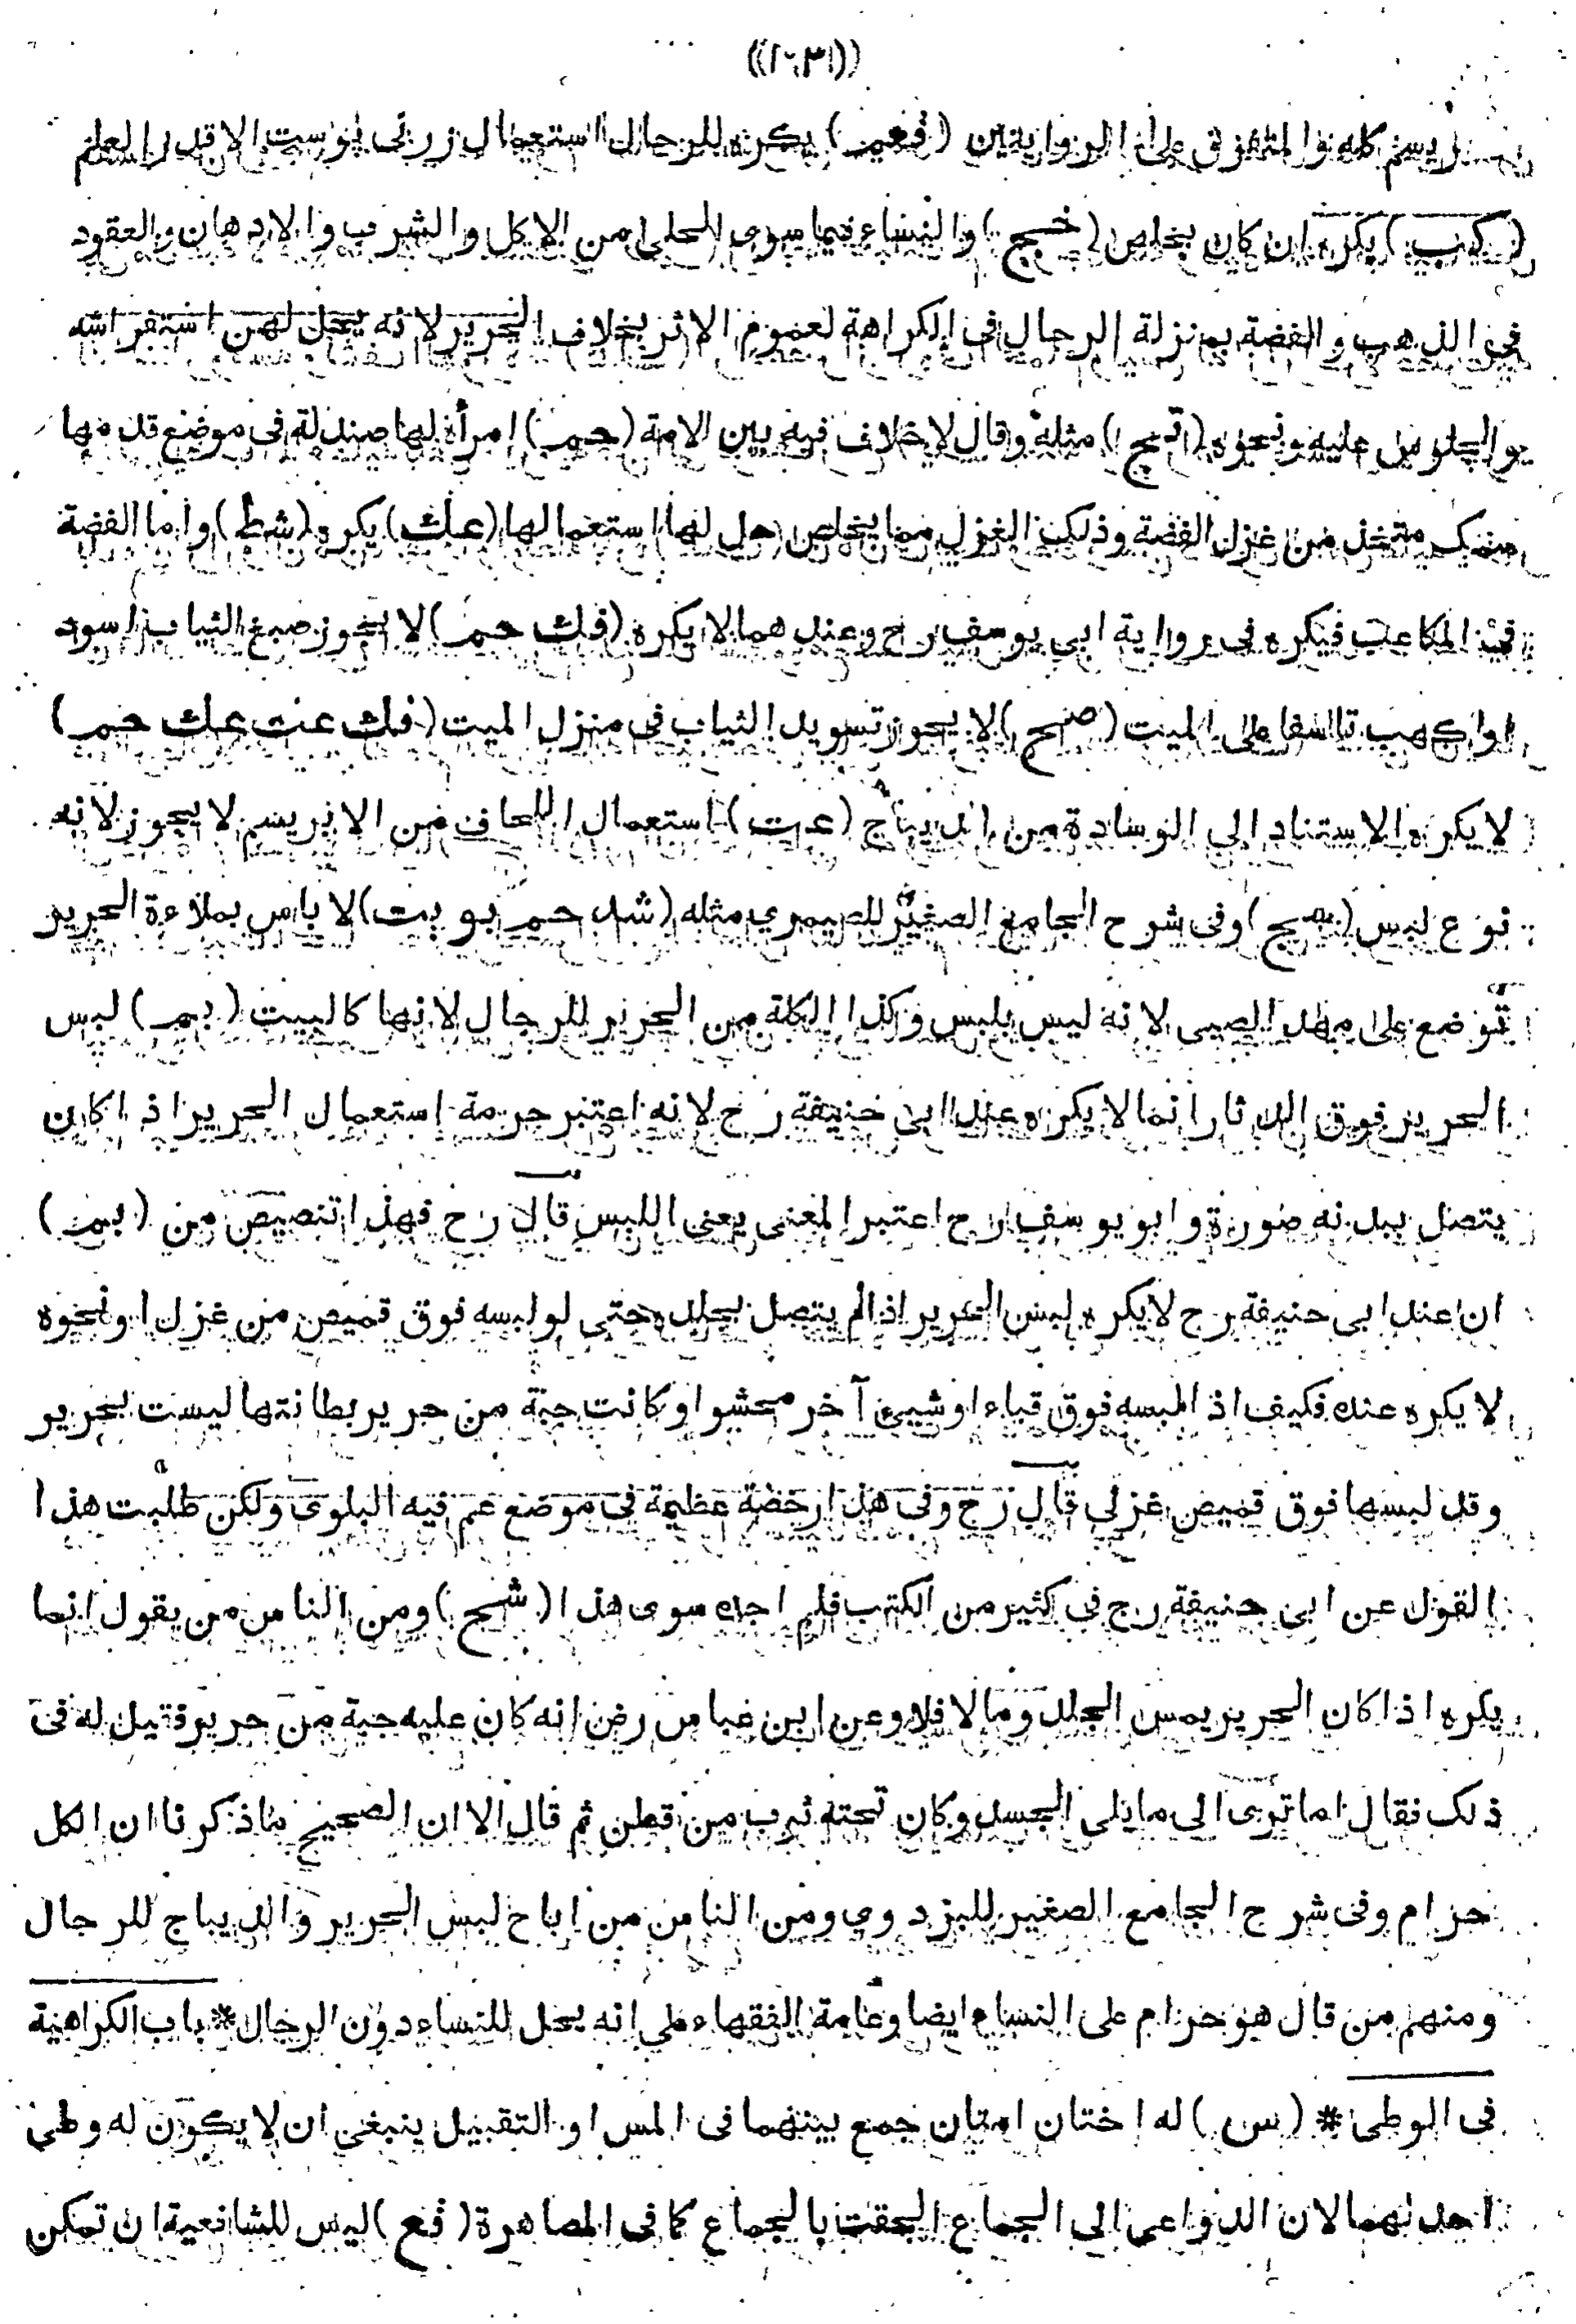 ((١٠٣١))
بريسم كله والمتفرق على الروايتين (فعيم) يكره للرجال استعمال زربى پوست الا قدر العلم
(نكب) يكره ان كان يخلص (خسج) والنساء فيما سوى الحلى من الاكل والشرب والادهان والعقود
فى الذهب والفضة بمنزلة الرجال فى الكراهة لعموم الاثر بخلاف الحرير لانه يحل لهن استفراشه
والجلوس عليه ونحوه (اتج) مثله وقال لا خلاف فيه بين الامة (حم) امرأة لها صندلة فى موضع قدمها
سمك متخذ من غزل الفضة وذلك الغزل مما يخلص حل لها استعمالها (عك) يكره (شط) واما الفضة
فى المكاعب فيكره فى رواية ابي يوسف رح وعندهما لا يكره (فك حم) لا يجوز صبغ الثياب اسود
او اكهب تاسفا على الميت (صج) لا يجوز تسويد الثياب فى منزل الميت (فك عت عك حم)
لا يكره الاستناد الى الوسادة من الديباج (عت) استعمال اللحاف من الابريسم لا يجوز لانه
نوع لبس (بمج) وفى شرح الجامع الصغير للصيمري مثله (شد حم بو بت) لا باس بملاءة الحرير
توضع على مهد الصبى لانه ليس بلبس وكذا الكلة من الحرير للرجال لانها كالبيت (بم) لبس
الحرير فوق الدثار انما لا يكره عند ابى حنيفة رح لانه اعتبر حرمة استعمال الحرير اذا كان
يتصل ببدنه صورة وابو يوسف رح اعتبر المعنى يعنى اللبس قال رح فهذا تنصيص من (بم)
ان عند ابى حنيفة رح لا يكره لبس الحرير اذا لم يتصل بجلده حتى لو لبسه فوق قميص من غزل او نحوه
لا يكره عنده فكيف اذا لبسه فوق قباء او شيئ آخر محشو او كانت جبة من حرير بطانتها ليست بحرير
وقد لبسها فوق قميص غزلي قال رح وفى هذا رخصة عظيمة فى موضع عم فيه البلوى ولكن طلبت هذا
القول عن ابى حنيفة رح فى كثير من الكتب فلم اجده سوى هذا (شح) ومن الناس من يقول انما
يكره اذا كان الحرير يمس الجلد وما لا فلا وعن ابن عباس رض انه كان عليه جبة من حرير فقيل له فى
ذلك فقال اما ترى الى ما يلى الجسد وكان تحته ثوب من قطن ثم قال الا ان الصحيح ما ذكرنا ان الكل
حرام وفى شرح الجامع الصغير للبزدوي ومن الناس من اباح لبس الحرير والديباج للرجال
ومنهم من قال هو حرام على النساء ايضا وعامة الفقهاء على انه يحل للنساء دون الرجال * باب الكراهية
فى الوطى * (س) له اختان امتان جمع بينهما فى المس او التقبيل ينبغى ان لا يكون له وطى
احدٰهما لان الدواعى الى الجماع الحقت بالجماع كما فى المصاهرة (فع) ليس للشافعية ان تمكن